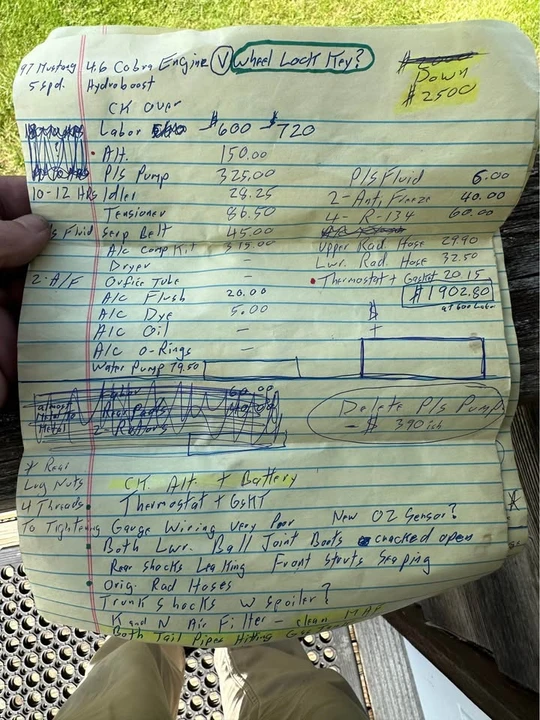 97 Mustang 4.6 Cobra Engine V Wheel Lock Key?
5 spd. Hydroboost
Down
$2500
CK Over
Labor $600 $720
• Alt. 150.00
P/S Pump 325.00 P/S Fluid 6.00
10-12 HRS Idler 28.25 2- Anti Freeze 40.00
Tensioner 86.50 4- R-134 60.00
Fluid Serp Belt 45.00
A/C Comp Kit 315.00 Upper Rad Hose 29.90
Dryer — Lwr. Rad. Hose 32.50
2- A/F Orfice Tube — • Thermostat + Gasket 20.15
A/C Flush 20.00 $1902.80
at 600 Labor
A/C Dye 5.00 $
A/C Oil — +
A/C O-Rings —
Water Pump 79.50
Rear Pads
Metal 2- Rotors
Delete P/S Pump
- $ 390
* Rear
Lug Nuts CK Alt. + Battery
4 Threads • Thermostat + GSKT
To Tightening Gauge Wiring Very Poor New O2 Sensor?
• Both Lwr. Ball Joint Boots cracked open
Rear Shocks Leaking Front Struts Seaping
• Orig. Rad Hoses
Trunk Shocks w Spoiler?
K and N Air Filter - clean MAF
Both Tail Pipes Hitting